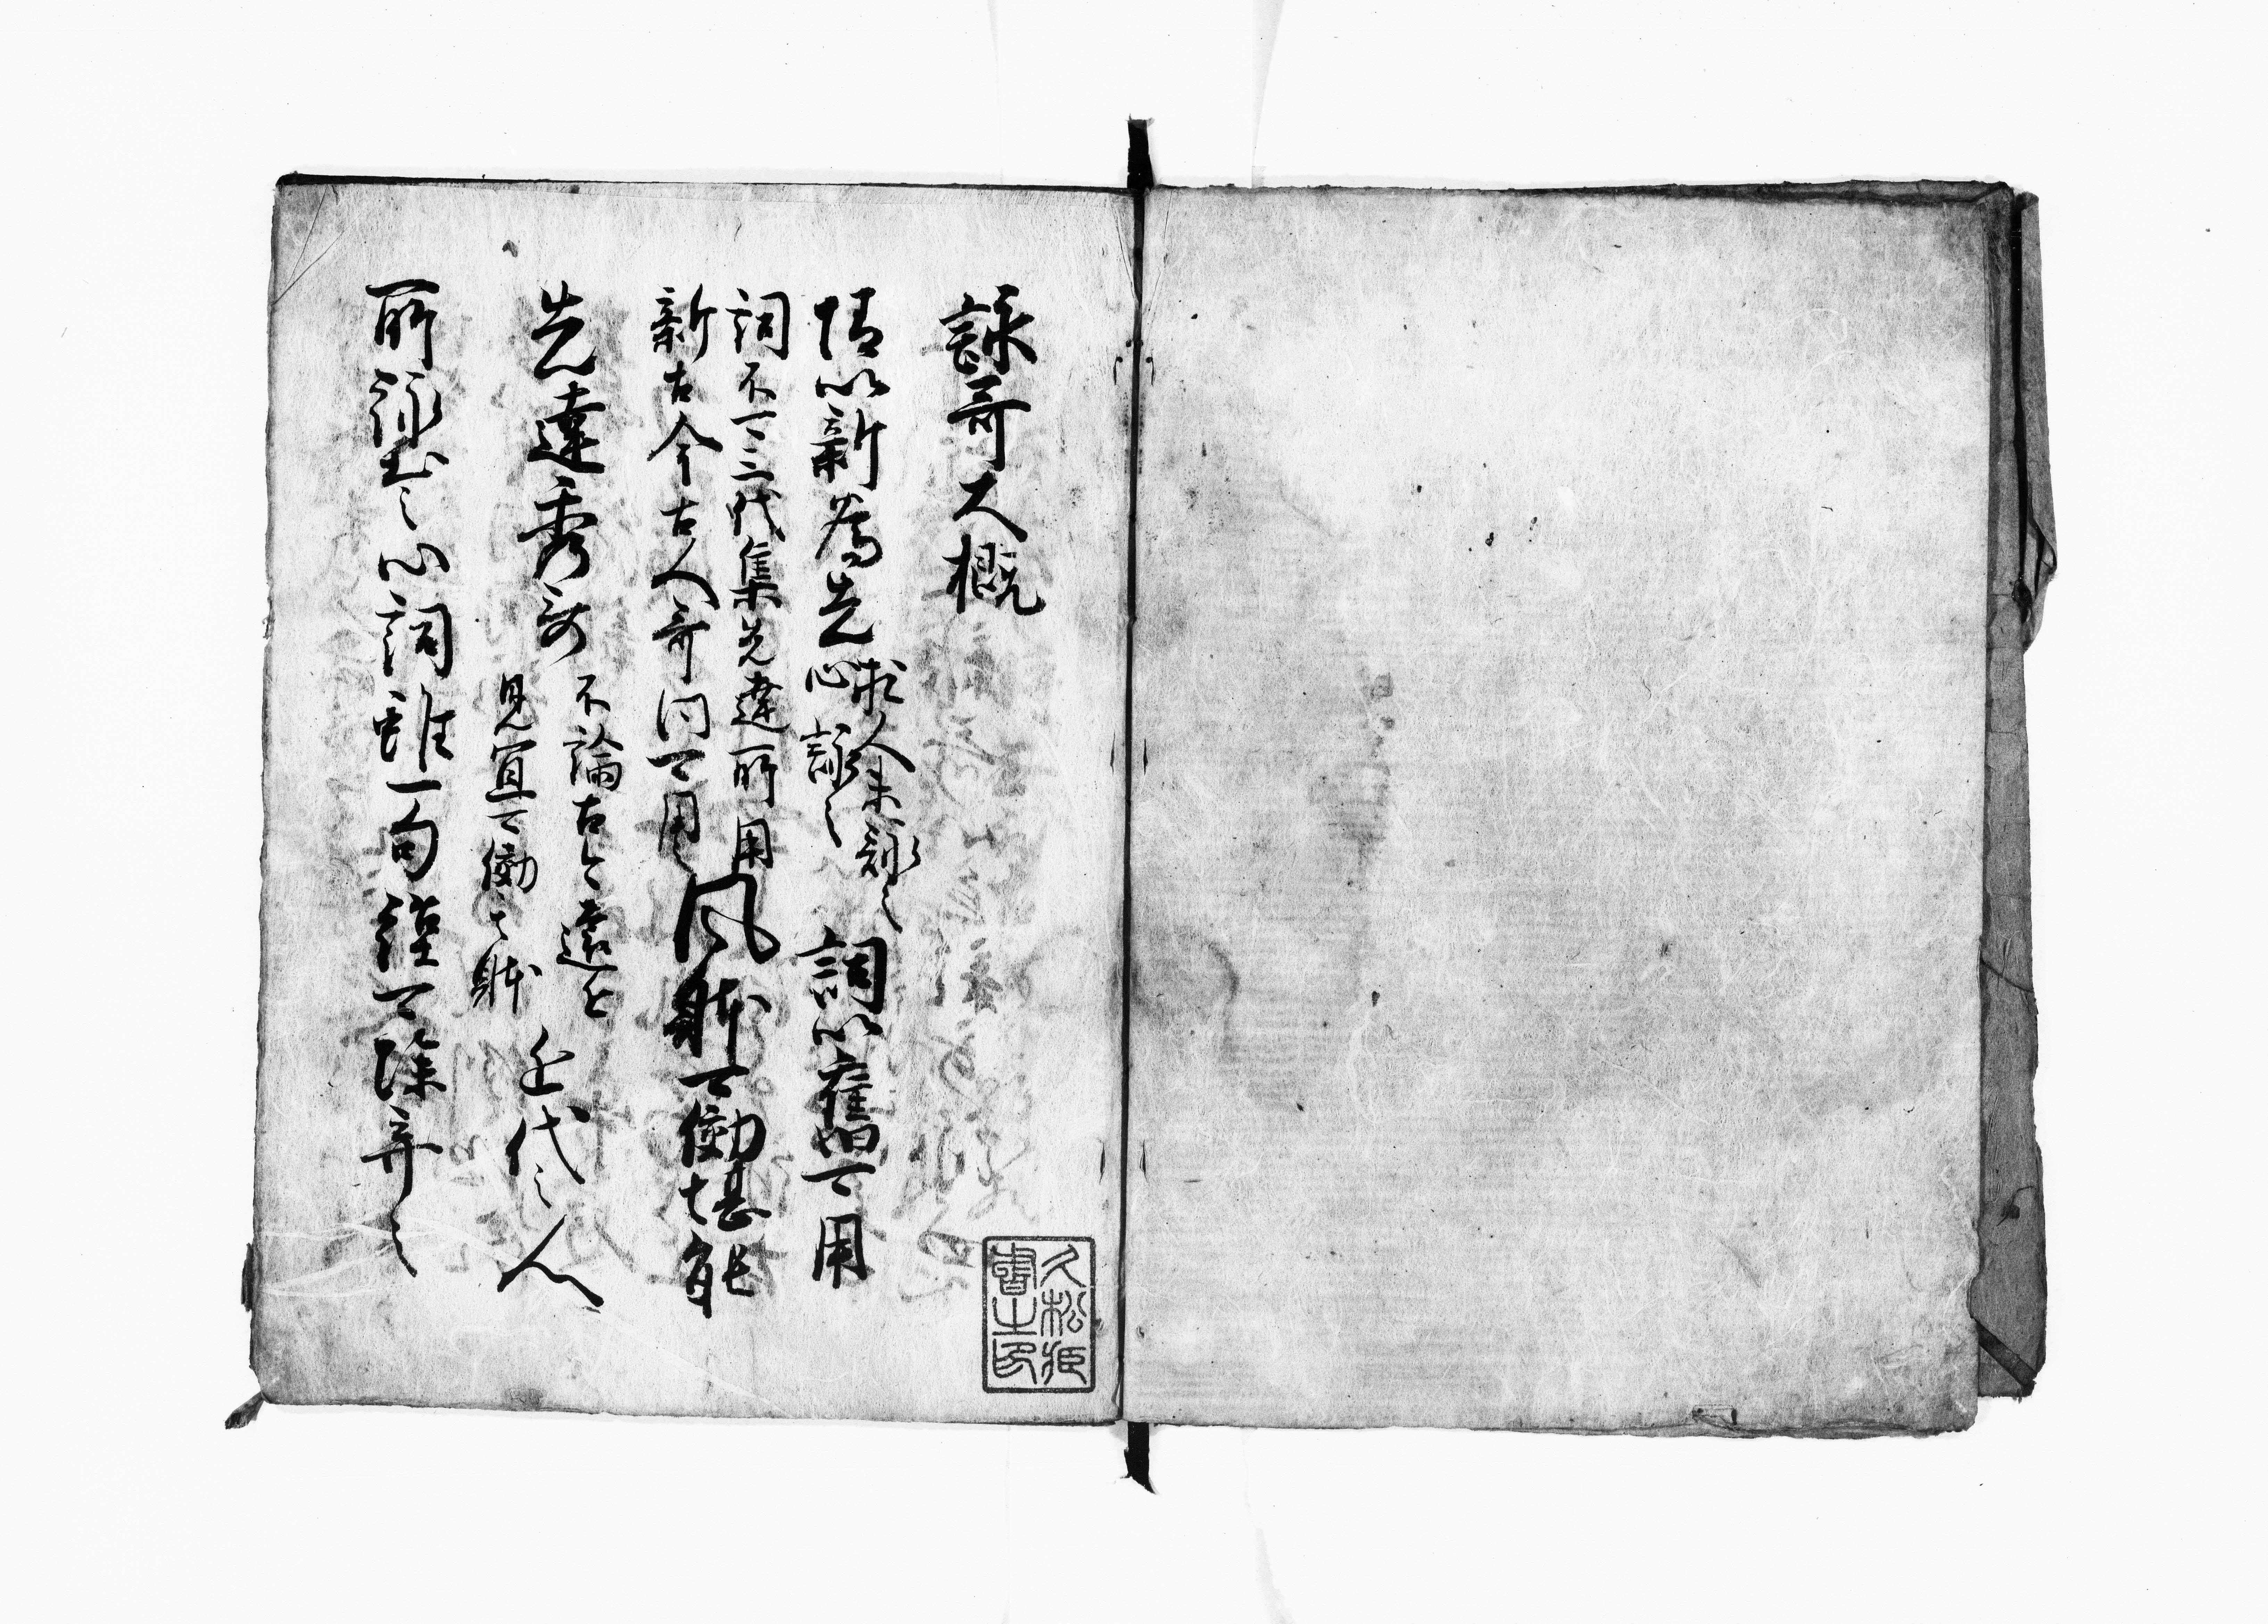 詠哥大概
情以新為先
求人未詠之
心詠之
詞以舊可用
詞不可三代集先達所用
新古今古人哥同可用之
風躰可効堪能
先達秀哥
不論古今遠近
見宜可効其躰
近代之人
所詠出之心詞雖一句謹可除弃之